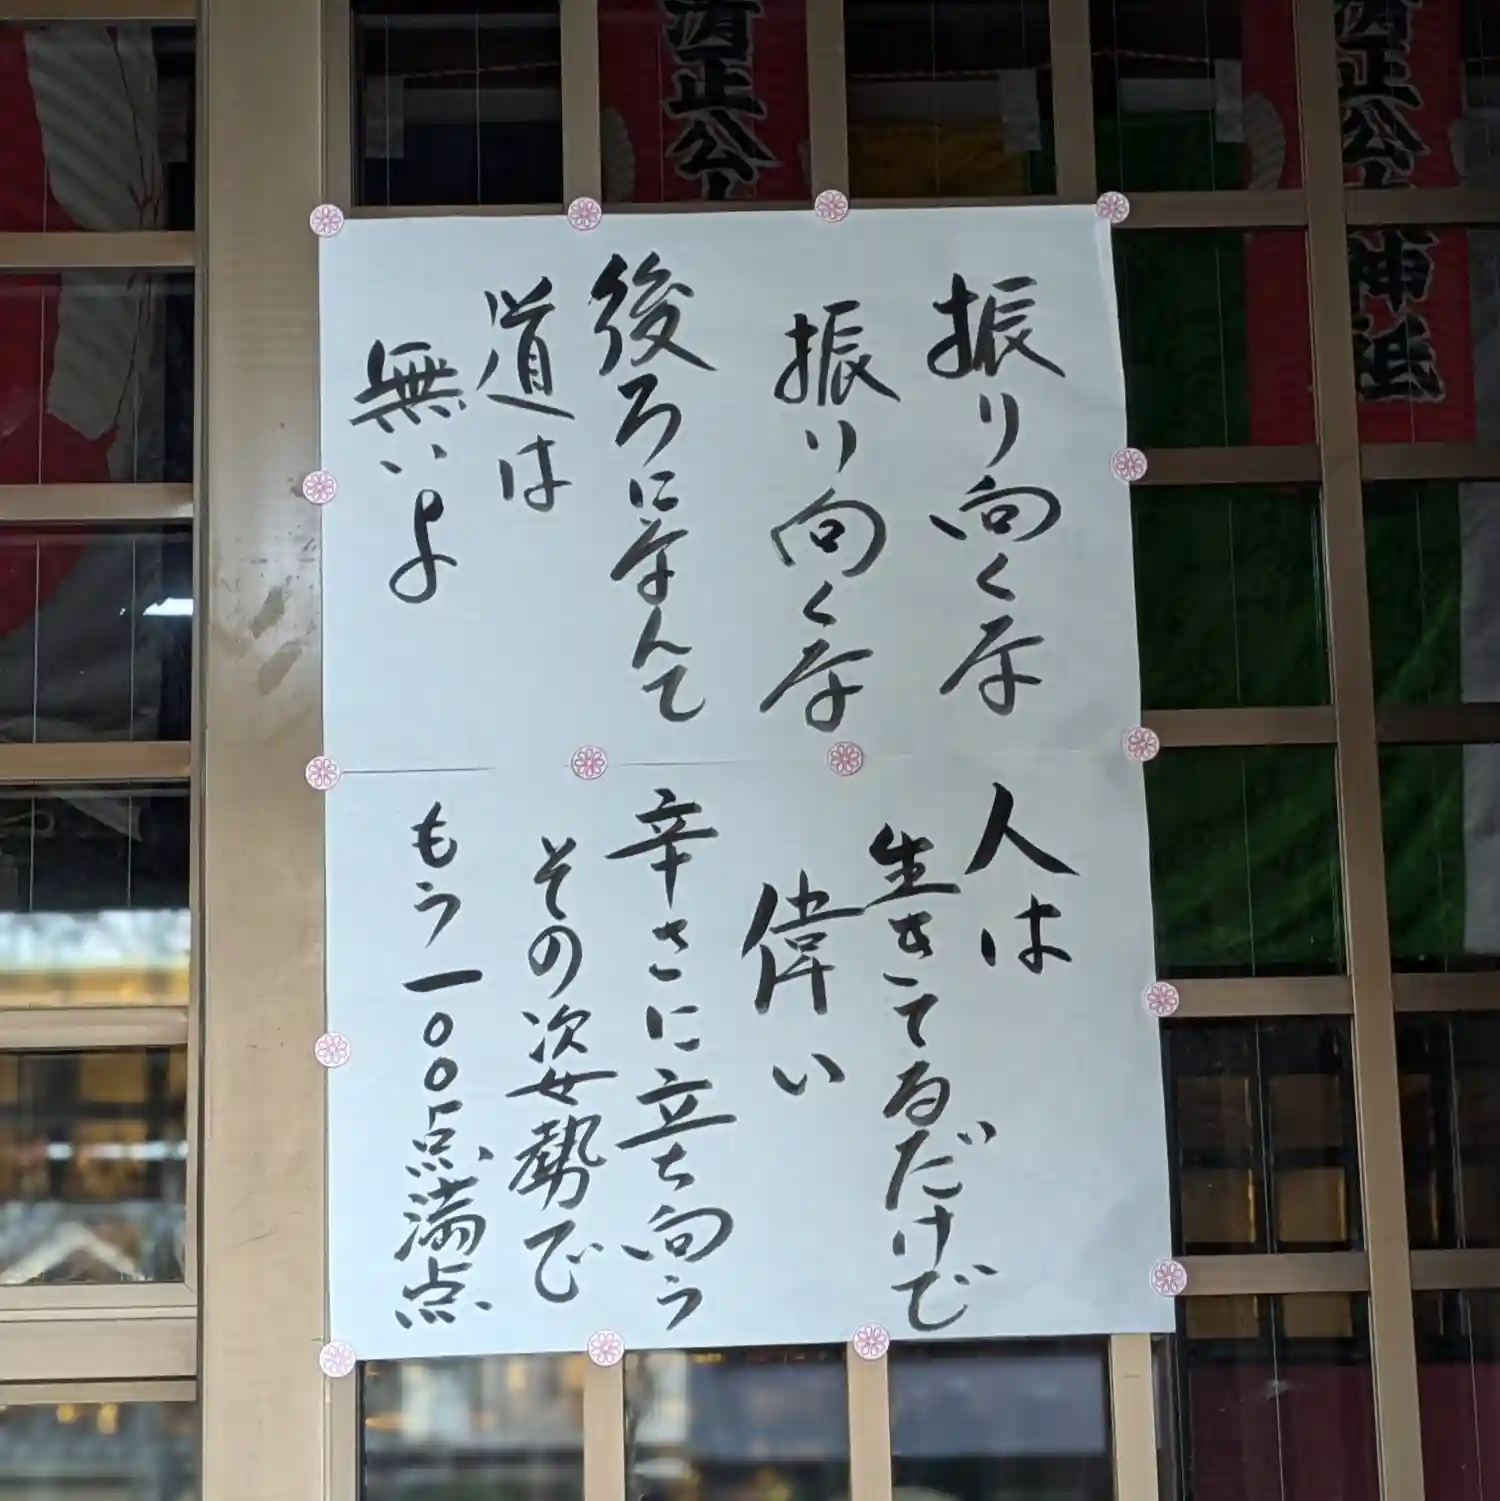 振り向くな
振り向くな
後ろになんて
道は
無いよ
人は
生きてるだけで
偉い
辛さに立ち向う
その姿勢で
もう一〇〇点満点
酒正公